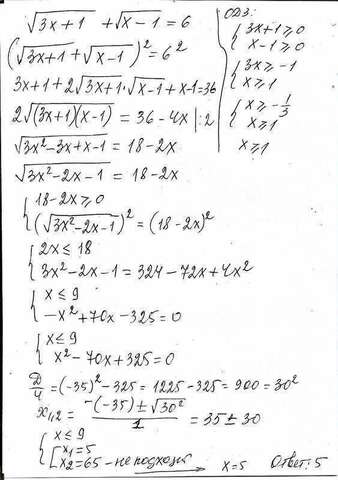 √3x+1 + √x-1 = 6
(√3x+1 + √x-1)² = 6²
3x+1+2√3x+1·√x-1+x-1=36
2√(3x+1)(x-1) = 36-4x |:2
√3x²-3x+x-1 = 18-2x
√3x²-2x-1 = 18-2x
{ 18-2x≥0
(√3x²-2x-1)² = (18-2x)²
{ 2x ≤ 18
3x²-2x-1=324-72x+4x²
{ x ≤ 9
-x²+70x-325=0
{ x ≤ 9
x²-70x+325=0
D/4 = (-35)²-325 = 1225-325 = 900 = 30²
x₁,₂ = (-(-35) ± √30²)/1 = 35 ± 30
{ x ≤ 9
[ x₁=5
x₂=65 - не подходит → x=5 Ответ: 5
ОДЗ:
{ 3x+1≥0
x-1≥0
{ 3x≥-1
x≥1
{ x≥-1/3
x≥1
x≥1